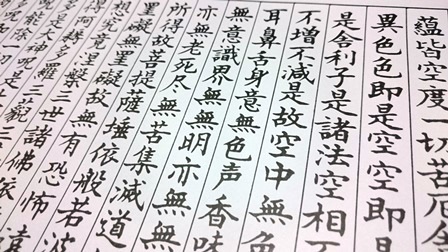 蘊皆空度一切苦厄
異色色即是空空即
是舍利子是諸法空相
不增不減是故空中無色
耳鼻舌身意無色声香味
無意識界無無明亦無無
亦無老死尽無苦集滅道
所得故菩提薩埵依般若波
罣礙無罣礙故無有恐怖
想究竟涅槃三世諸佛依
得阿耨多羅三藐三
多是大神呪是大
能除一切